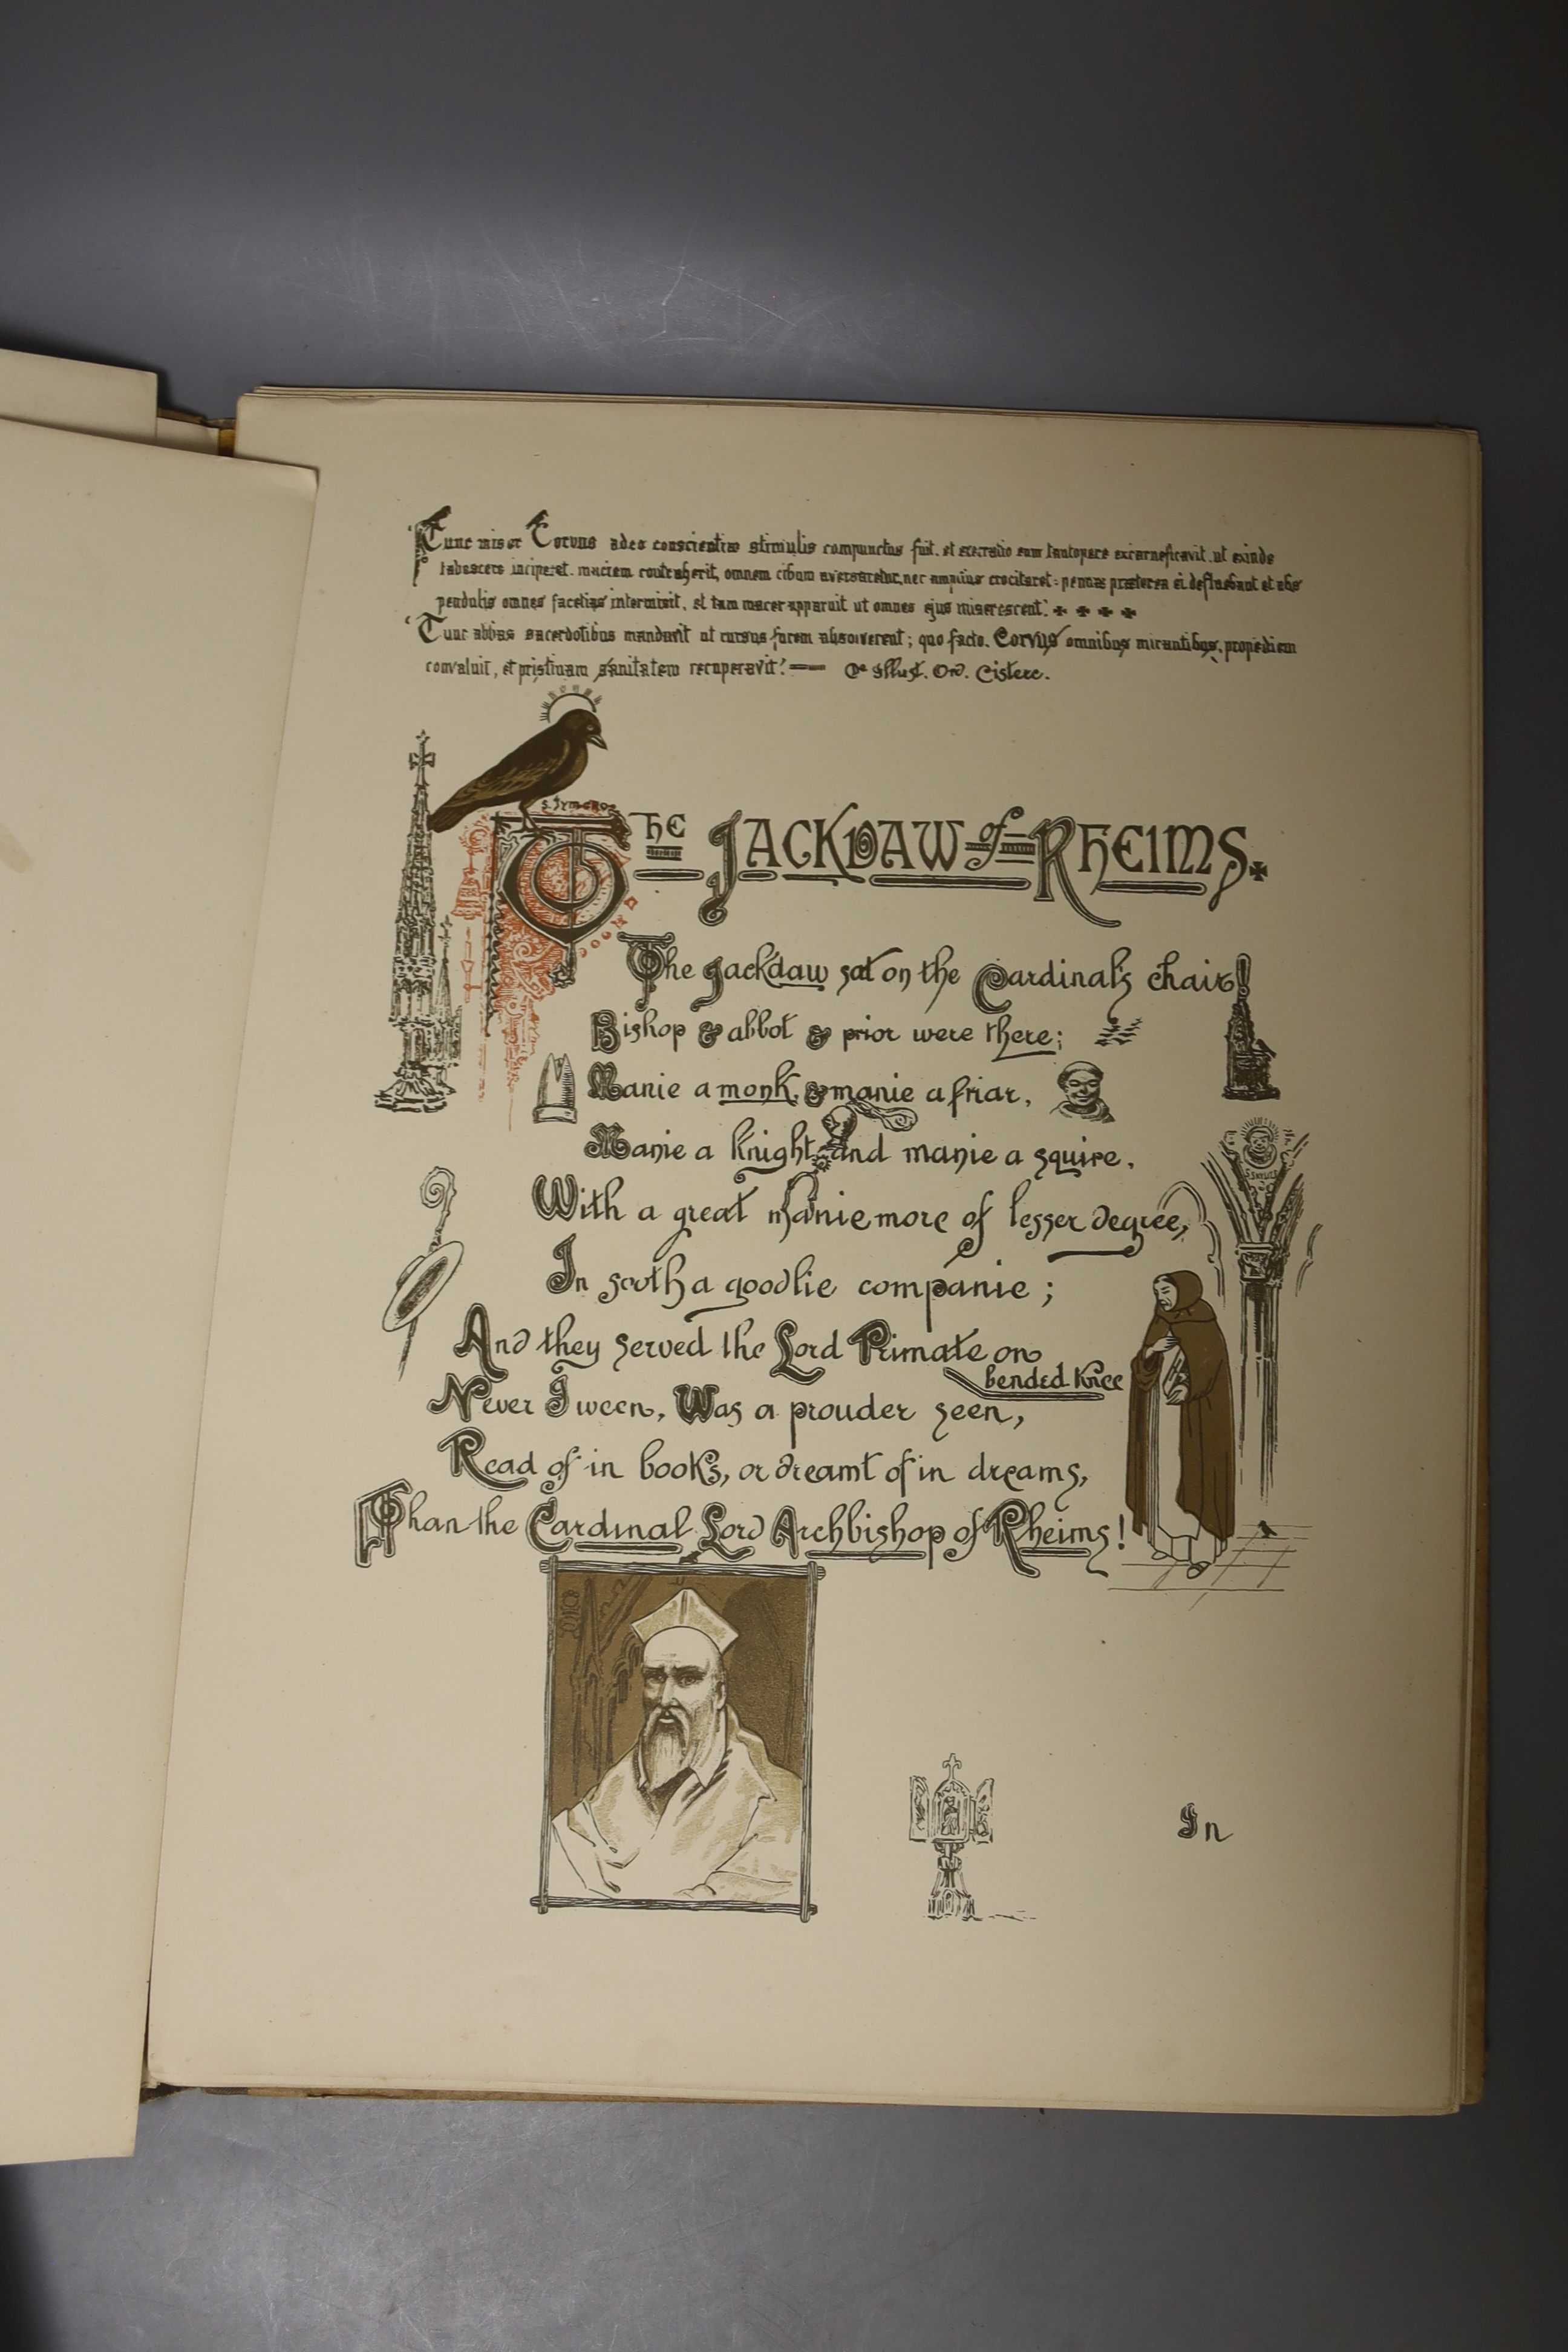 'Tunc miser Corvus adeo conscientiæ stimulis compunctus fuit, et execratio eum tantopere excarneficavit, ut exinde
tabescere inciperet, maciem contraherit, omnem cibum aversaretur, nec amplius crocitaret: pennæ præterea ei defluebant et alis
pendulis omnes facetias intermisit, et tam macer apparuit ut omnes ejus miserescent.' ✠ ✠ ✠ ✠
'Tunc abbas sacerdotibus mandavit ut rursus furem absolverent; quo facto, Corvus omnibus mirantibus, propediem
convaluit, et pristinam sanitatem recuperavit.' — De Illust. Ord. Cisterc.
The Jackdaw of Rheims.
The Jackdaw sat on the Cardinal's chair!
Bishop & abbot & prior were there;
Manie a monk, & manie a friar,
Manie a knight, and manie a squire,
With a great manie more of lesser degree,
In sooth a goodlie companie;
And they served the Lord Primate on
bended knee
Never I ween, Was a prouder seen,
Read of in books, or dreamt of in dreams,
Than the Cardinal Lord Archbishop of Rheims!
In